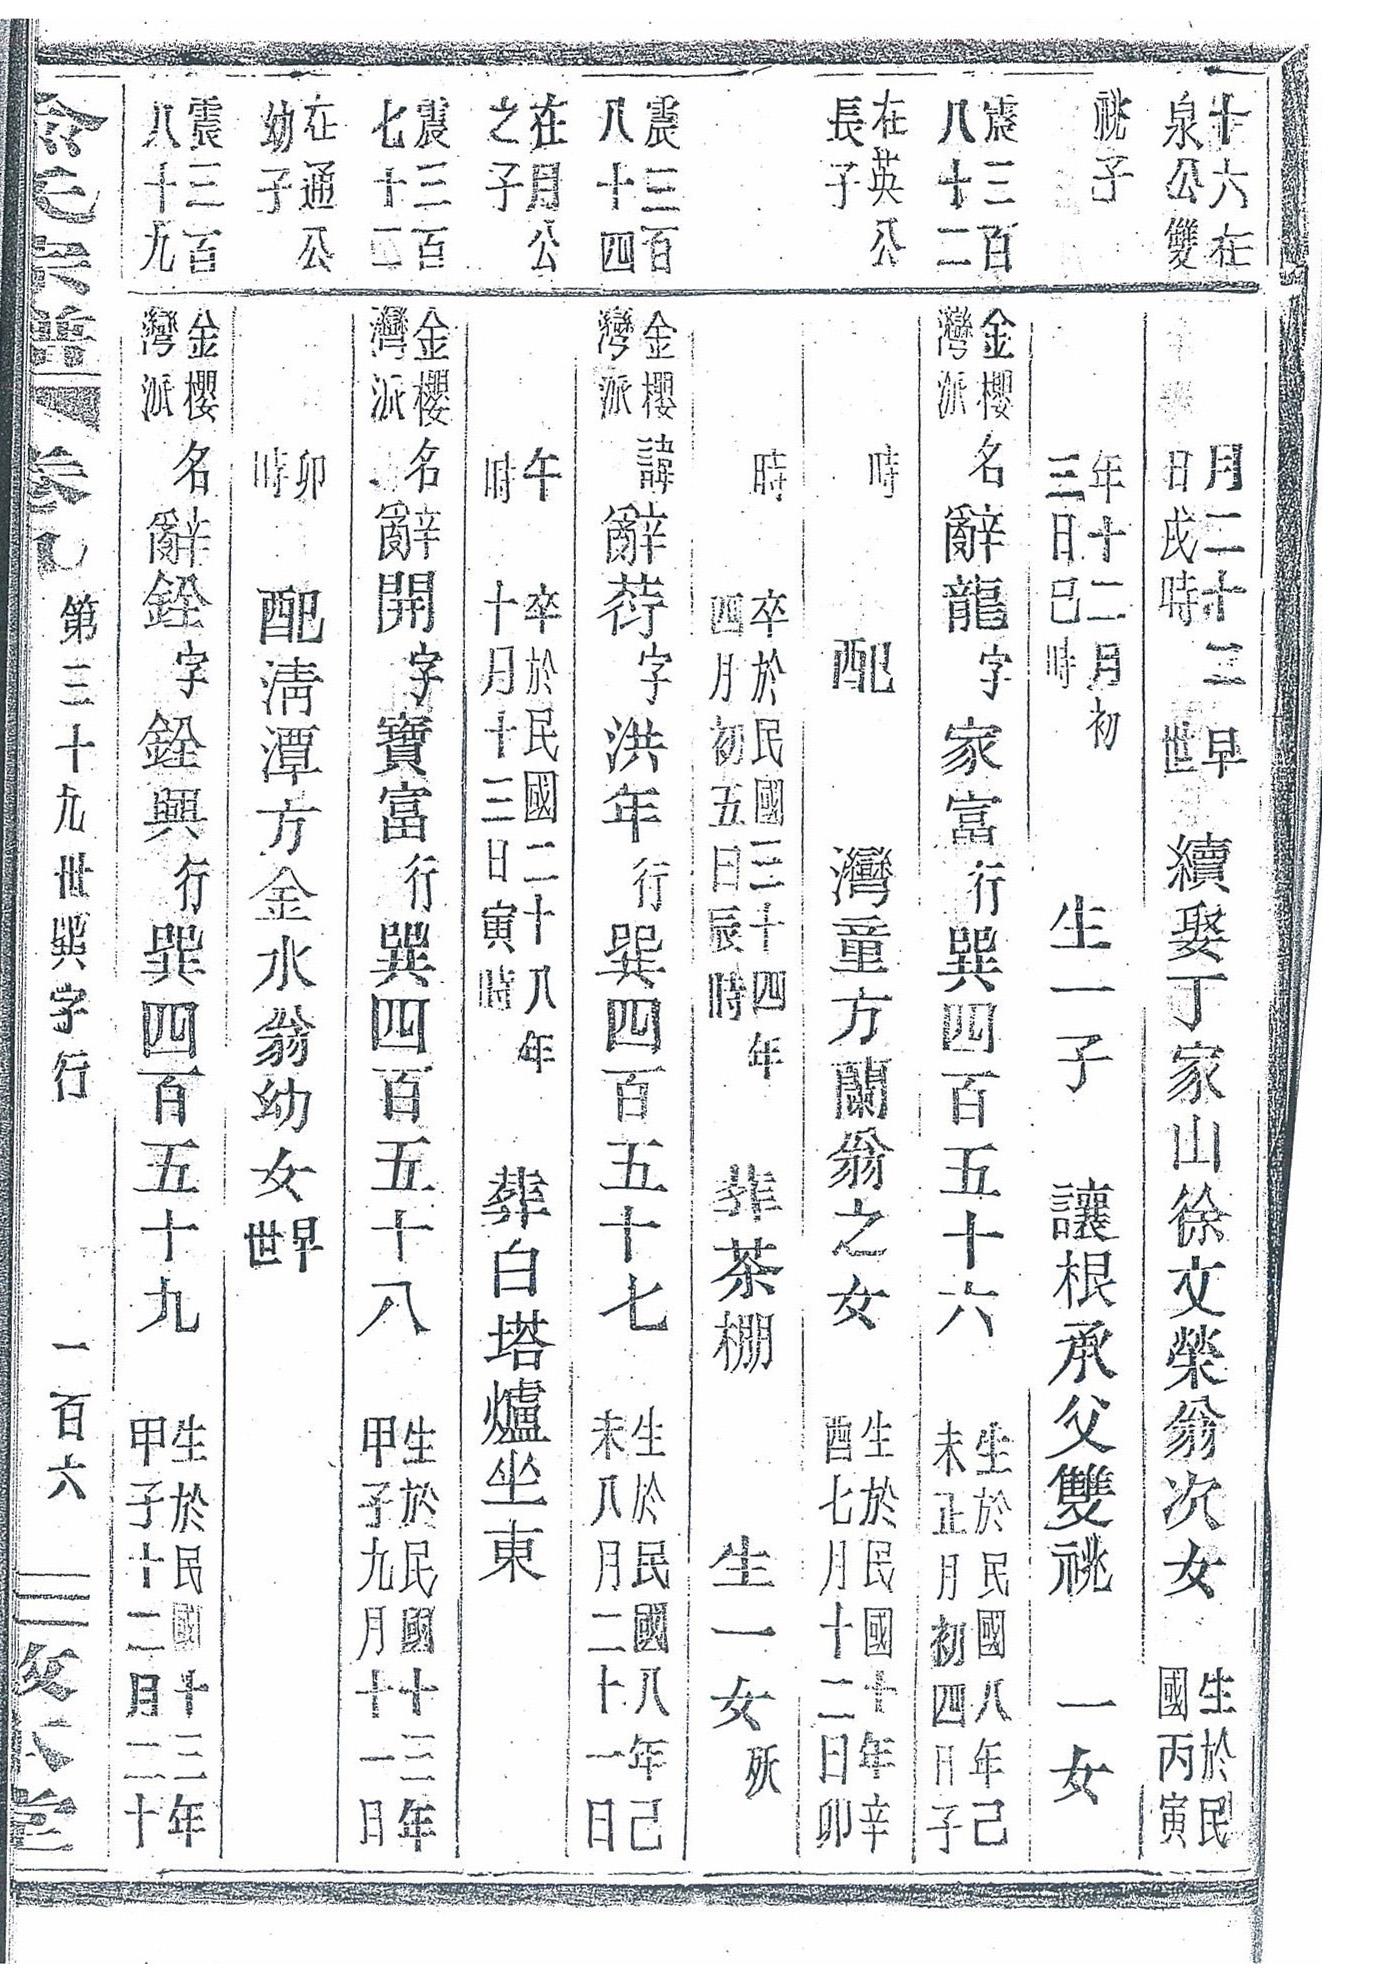 十六在
泉公雙
月二十三
日戌時
早
世
續娶丁家山徐文榮翁次女
生於民
國丙寅
祧子
年十二月初
三日巳時
生一子
讓根承父雙祧
一女
震三百
八十二
金櫻
灣派
名辭龍字家富行巽四百五十六
生於民國八年己
未正月初四日子
在英公
長子
時
配
灣童方蘭翁之女
生於民國十年辛
酉七月十二日卯
時
卒於民國三十四年
四月初五日辰時
葬茶棚
生一女
殀
震三百
八十四
金櫻
灣派
諱辭荐字洪年行巽四百五十七
生於民國八年己
未八月二十一日
在月公
之子
午
時
卒於民國二十八年
十月十三日寅時
葬白塔爐坐東
震三百
七十二
金櫻
灣派
名辭開字寶富行巽四百五十八
生於民國十三年
甲子九月十一日
在通公
幼子
卯
時
配清潭方金水翁幼女
早
世
震三百
八十九
金櫻
灣派
名辭銓字銓興行巽四百五十九
生於民國十三年
甲子十二月二十
第三十九世巽字行
一百六